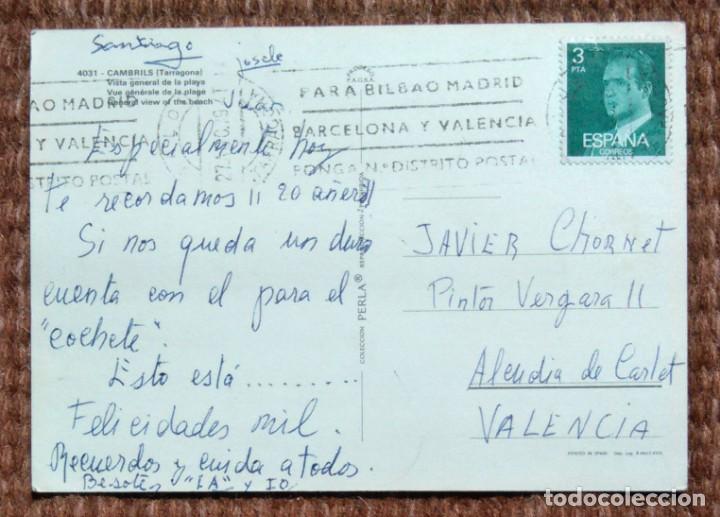 Santiago
Josele
4031 - CAMBRILS (Tarragona)
Vista general de la playa
Vue générale de la plage
General view of the beach
Juan
PARA BILBAO MADRID
BARCELONA Y VALENCIA
PONGA N.º DISTRITO POSTAL
O MADRID
Y VALENCIA
DISTRITO POSTAL
3
PTA
ESPAÑA
CORREOS
Especialmente hoy
Te recordamos !! 20 años!!
Si nos queda un duro
cuenta con el para el
"cochete".
Esto está.........
Felicidades mil.
Recuerdos y cuida a todos.
Besotes "EA" y IO
COLECCION PERLA®
JAVIER Chornet
Pintor Vergara 11
Alcudia de Carlet
VALENCIA
todocoleccion